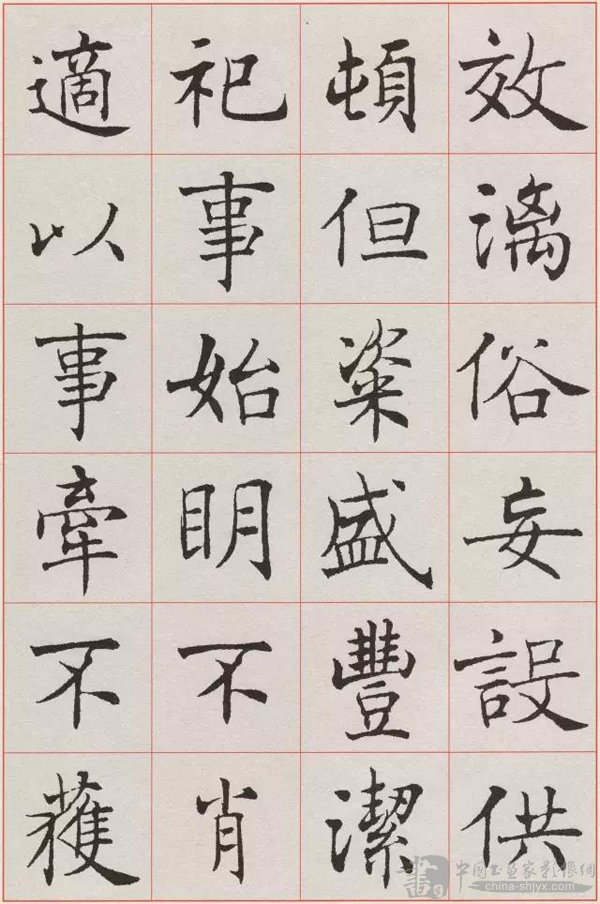 效漓俗妄設供
頓但粢盛豐潔
祀事始眀不肖
適以事牽不獲
中國书画家影像網
china-shjyx.com